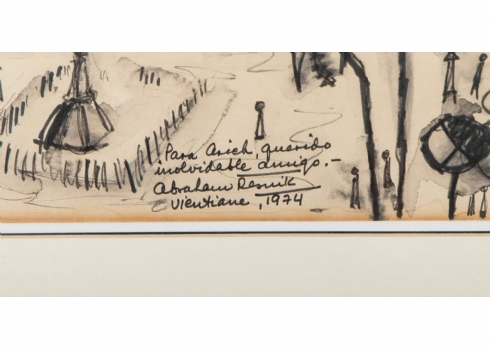 Para Arich, querido
inolvidable amigo.-
Abraham Resnik
Vientiane, 1974